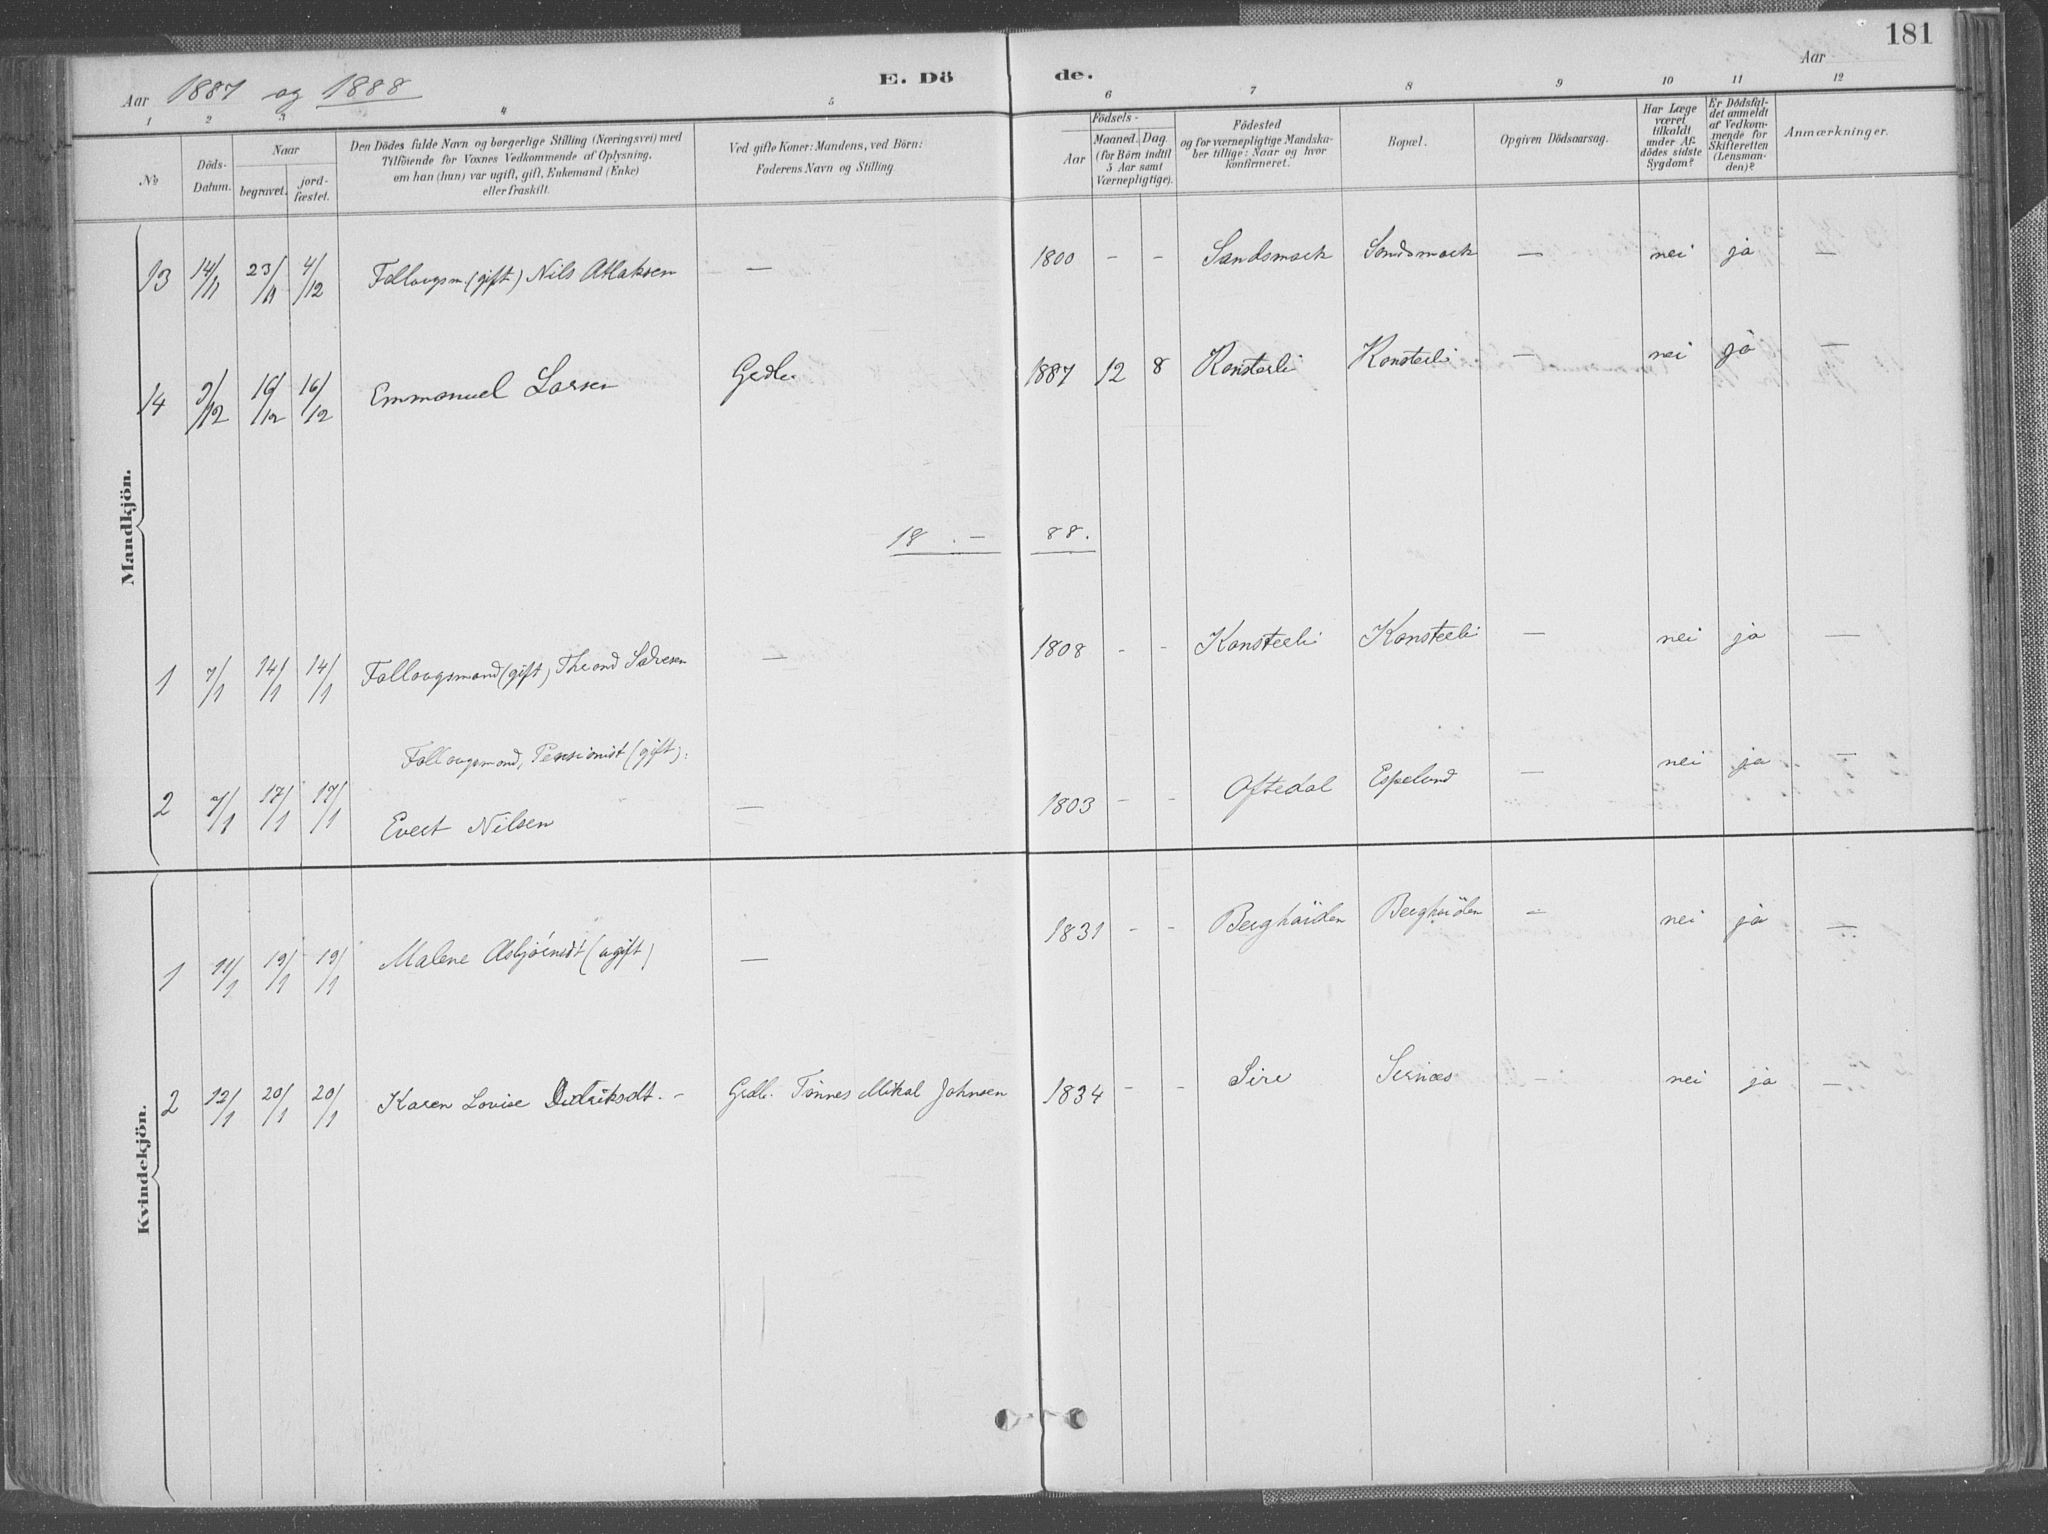 181
Aar 1887 og 1888
E. Dö de.
Aar
1 2 3 4 5 6 7 8 9 10 11 12
No
Döds-
Datum.
Naar
begravet.
jord-
fæstet.
Den Dödes fulde Navn og borgerlige Stilling (Næringsvei) med
Tilföiende for Voxnes Vedkommende af Oplysning,
om han (hun) var ugift, gift, Enkemand (Enke)
eller fraskilt.
Ved gifte Koner: Mandens, ved Börn:
Faderens Navn og Stilling
Födsels-
Aar
Maaned. Dag.
(for Börn indtil
5 Aar samt
Værnepligtige).
Födested
og for værnepligtige Mandska-
ber tillige: Naar og hvor
konfirmeret.
Bopæl.
Opgiven Dödsaarsag.
Har Læge
været
tilkaldt
under Af-
dödes sidste
Sygdom?
Er Dödsfal-
det anmeldt
af Vedkom-
mende for
Skifteretten
(Lensman-
den)?
Anmærkninger.
Mandkjön.
13 14/11 23/11 4/12 Follaugsm. (gift) Nils Atlaksen — 1800 - - Sandsmark Sandsmark — nei ja —
14 9/12 16/12 16/12 Emmanuel Larsen Grdbr. 1887 12 8 Konsterli Konsterli — nei ja —
18 . — 88.
1 7/1 14/1 14/1 Follaugsmand (gift) — 1808 - - Konsterli Konsterli — nei ja —
Follaugsmand, Pensionist (gift).
2 7/1 17/1 17/1 Evert Nilsen — 1803 - - Oftedal Espeland — nei ja —
Kvindekjön.
1 11/1 19/1 19/1 Malene Asbjörnsdt (ugift) — 1831 - - Berghöiden Berghöiden — nei ja —
2 12/1 20/1 20/1 Karen Lovise Didriksdt. - Grdbr. Tönnes Mikal Johnsen 1834 - - Sire Sirnæs — nei ja —